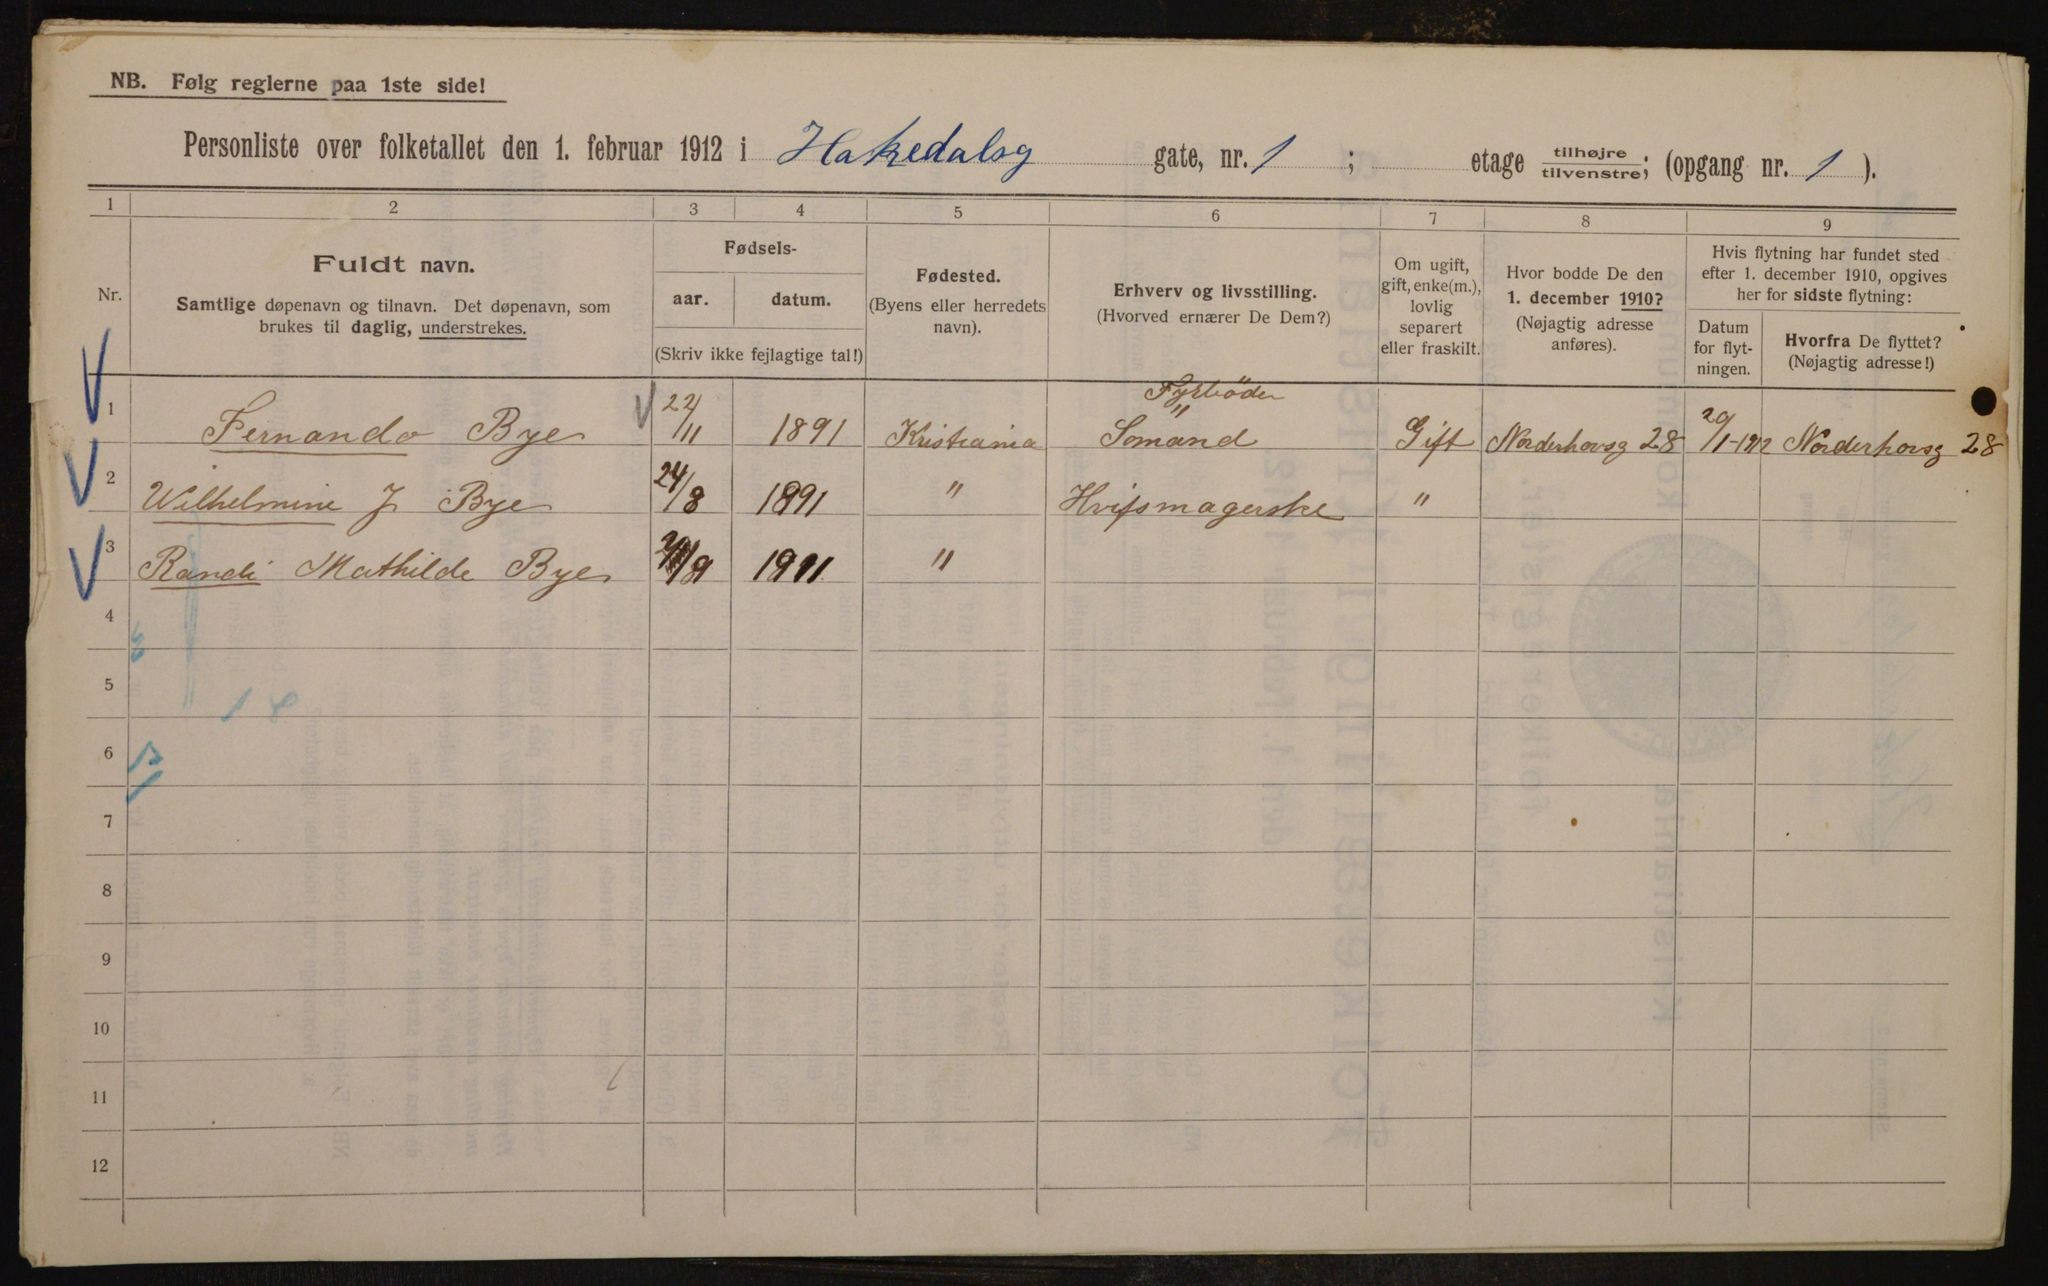 NB. Følg reglerne paa 1ste side!
Personliste over folketallet den 1. februar 1912 i Hakedalsg gate, nr. 1 ; etage tilhøjre tilvenstre; (opgang nr. 1 ).
1 2 3 4 5 6 7 8 9
Nr.
Fuldt navn.
Samtlige døpenavn og tilnavn. Det døpenavn, som
brukes til daglig, understrekes.
Fødsels-
aar. datum.
(Skriv ikke fejlagtige tal!)
Fødested.
(Byens eller herredets
navn).
Erhverv og livsstilling.
(Hvorved ernærer De Dem?)
Om ugift,
gift, enke(m.),
lovlig
separert
eller fraskilt.
Hvor bodde De den
1. december 1910?
(Nøjagtig adresse
anføres).
Hvis flytning har fundet sted
efter 1. december 1910, opgives
her for sidste flytning:
Datum
for flyt-
ningen.
Hvorfra De flyttet?
(Nøjagtig adresse!)
Fyrbøder
1 Fernando Bye 22/11 1891 Kristiania Sømand Gift Norderhovsg 28 20/1-1912 Norderhovsg 28
2 Wilhelmine J Bye 24/8 1891 " Hvitsmagerske "
3 Randi Mathilde Bye 1911 "
4
5
6
7
8
9
10
11
12